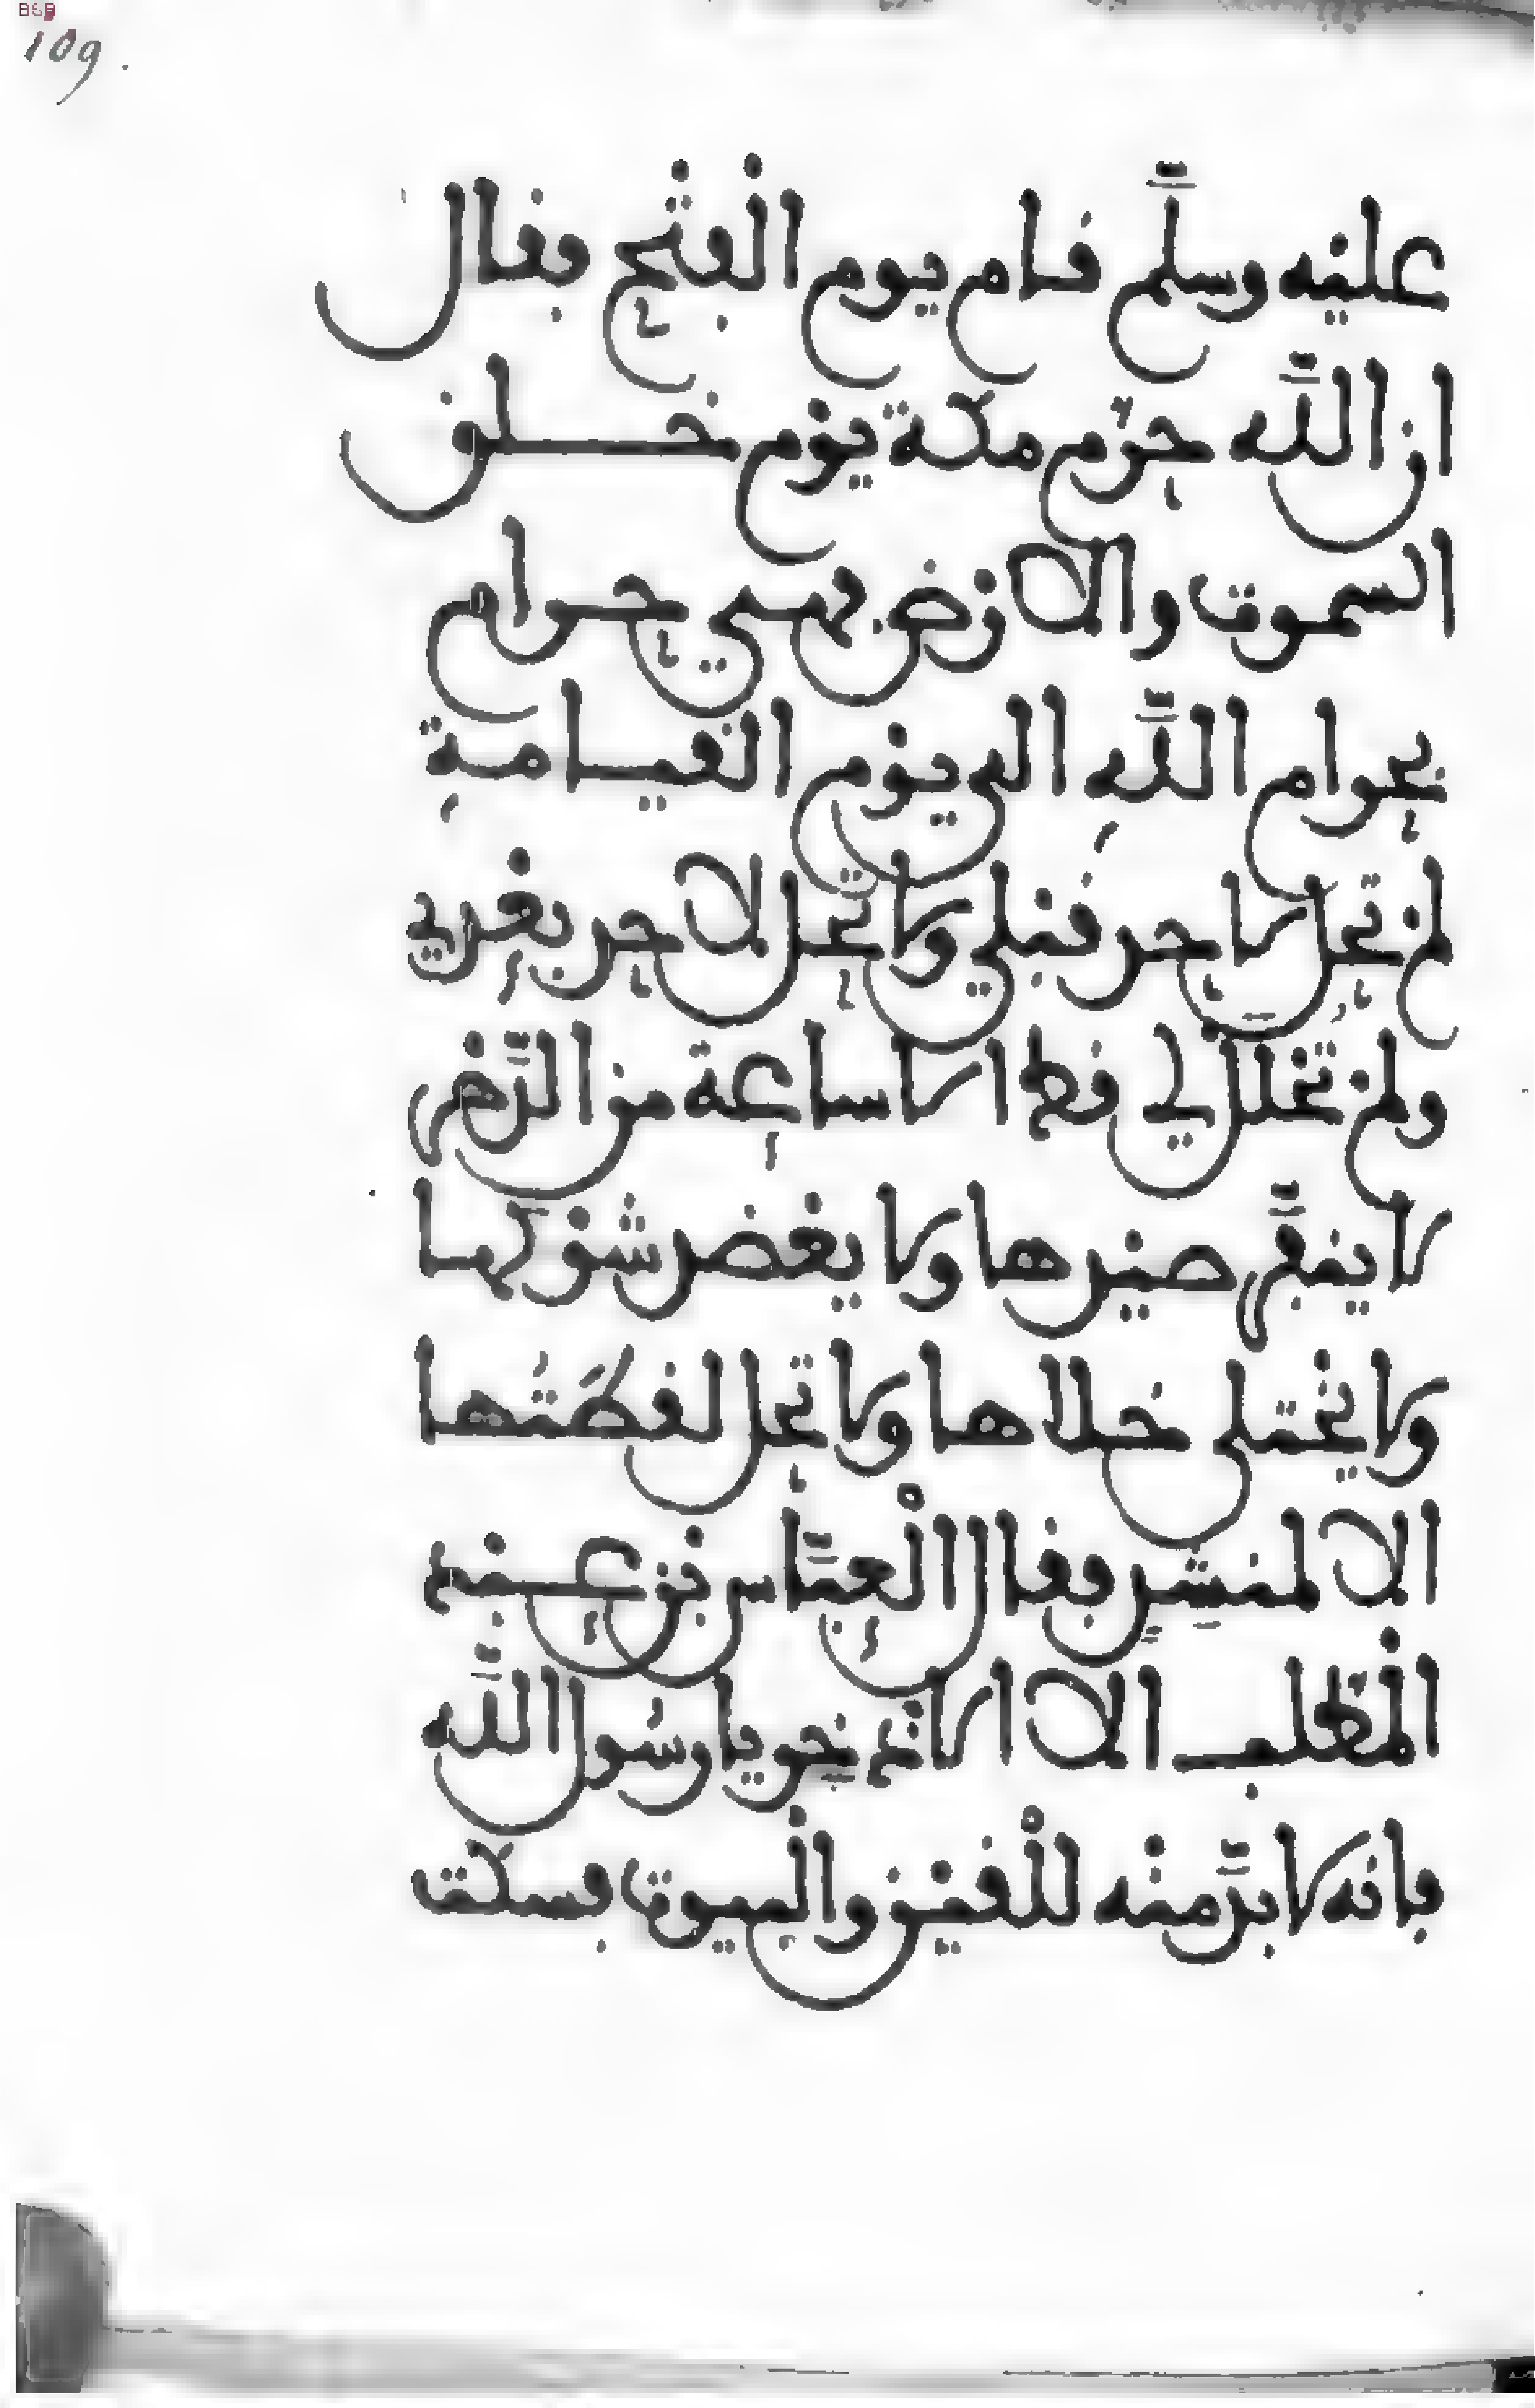 BSB
109.
عليه وسلم قام يوم الفتح فقال
ان الله حرم مكة يوم خلق
السموت والارض فهي حرام
بحرام الله الى يوم القيامة
لم تحل لاحد قبلي ولا تحل لاحد بعدي
ولم تحلل لي قط الا ساعة من الدهر
لا ينفر صيدها ولا يعضد شوكها
ولا يختلى خلاها ولا تحل لقطتها
الا لمنشد فقال العباس بن عبد
المطلب الا الاذخر يا رسول الله
فانه لا بد منه للقين والبيوت فسكت